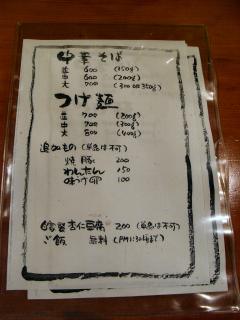 中華そば
並 600 (150g)
中 600 (200g)
大 700 (300or350g)
つけ麺
並 700 (200g)
中 700 (300g)
大 800 (400g)
追加もの (単品は不可)
焼豚 200
わんたん 150
味つけ卵 100
自家製杏仁豆腐 200 (単品は不可)
ご飯 無料 (PM1:30頃まで)